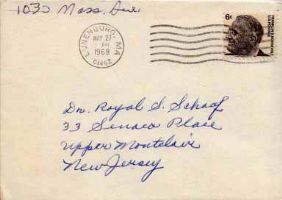 1035 Mass. Ave.
LUNENBURG, MA
MAY 27
PM
1968
01462
6¢
Dr. Royal S. Schaaf
33 Seneca Place
Upper Montclair
New Jersey